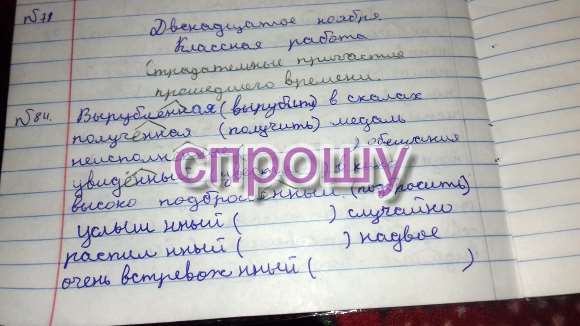 № 11 Двенадцатое ноября.
Классная работа
Страдательные причастие
прошедшего времени.
№84. Вырубленная (вырубить) в скалах
полученная (получить) медаль
неисполн обещания
увиденны
высоко подброшенный (подбросить)
услыш нный ( ) случайно
распил нный ( ) надвое
очень встревож нный ( )
спрошу